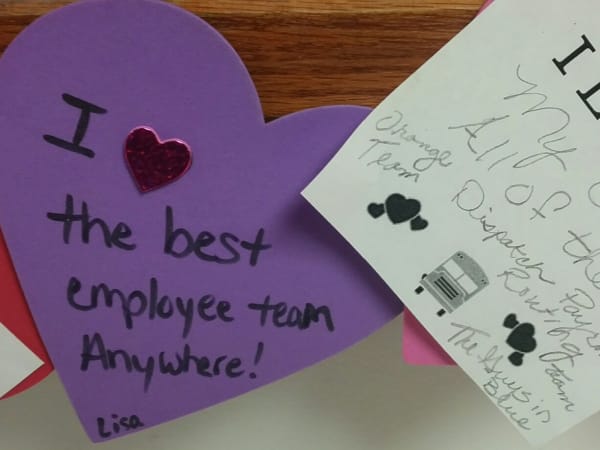 I
the best
employee team
Anywhere!
Lisa
I
My
All of the
Orange
Team
Dispatch
Routing
team
The Guys in
Blue